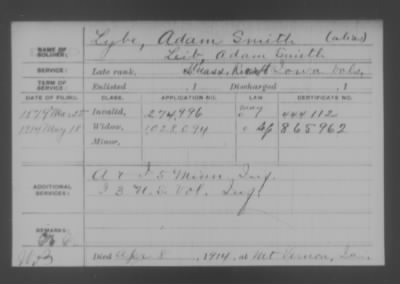 Lybe, Adam Smith (alias)
NAME OF SOLDIER: Leib Adam Smith
SERVICE: Late rank, Iowa Vols,
TERM OF SERVICE: Enlisted , 1 Discharged , 1
DATE OF FILING. CLASS. APPLICATION NO. LAW CERTIFICATE NO.
1879 Invalid, 274,996 444112
1914 May 18 Widow, 1028,094 865962
Minor,
ADDITIONAL SERVICES: 5 Minn. Inf.
3 U.S. Vol. Inf.
REMARKS:
Died Apr 8, 1914, at Mt Vernon, Ia.